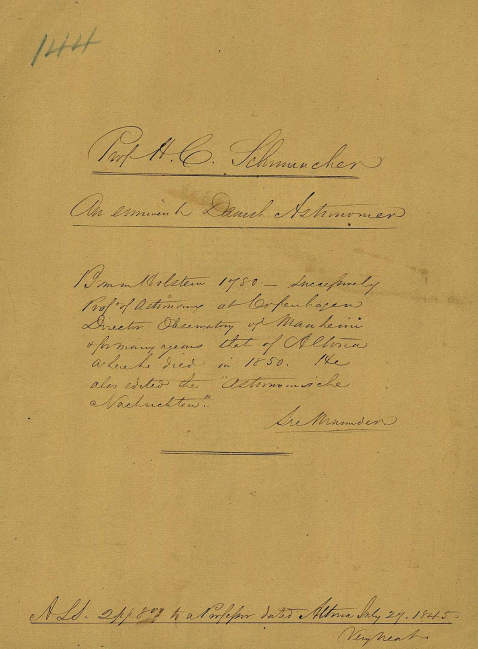 144
Prof H. C. Schmuucher
An eminent Danish Astronomer
Born in Holstein 1780 — successively
Profr of Astronomy at Copenhagen
Director Observatory of Manheim
& for many years that of Altona
where he died in 1850. He
also edited the Astronomische
Nachrichten".
See
A.L.S. 2pp 8vo to a Professor dated Altona July 29. 1845.
Very neat